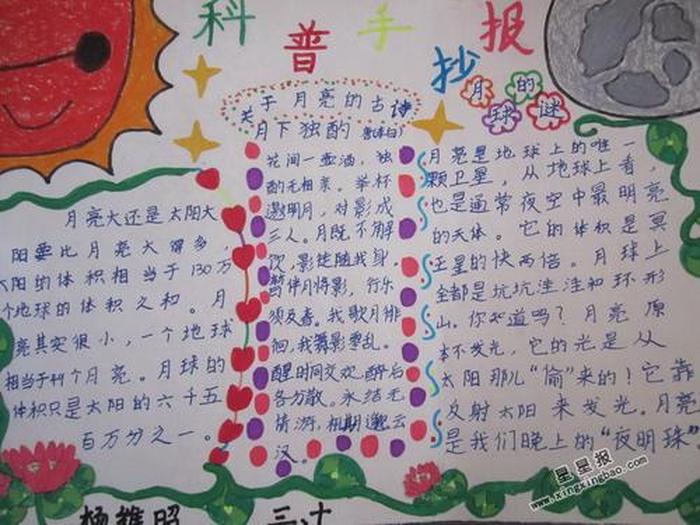 科普手抄报
月球的谜
关于月亮的古诗
月下独酌
花间一壶酒，独
酌无相亲。举杯
邀明月，对影成
三人。月既不解
饮，影徒随我身。
暂伴月将影，行乐
须及春。我歌月徘
徊，我舞影零乱。
醒时同交欢，醉后
各分散。永结无
情游，相期邈云
汉。
月亮大还是太阳大
阳要比月亮大得多，
太阳的体积相当于130万
个地球的体积之和。月
亮其实很小，一个地球
相当于49个月亮。月球的
体积只是太阳的六千五
百万分之一。
月亮是地球上的唯一
颗卫星，从地球上看，
也是通常夜空中最明亮
的天体。它的体积是冥
王星的快两倍。月球上
全都是坑坑洼洼和环形
山。你知道吗？月亮原
本不发光，它的光是从
太阳那儿“偷”来的！它靠
反射太阳来发光。月亮
是我们晚上的“夜明珠”
杨雅昭
星星报
www.xingxingbao.com